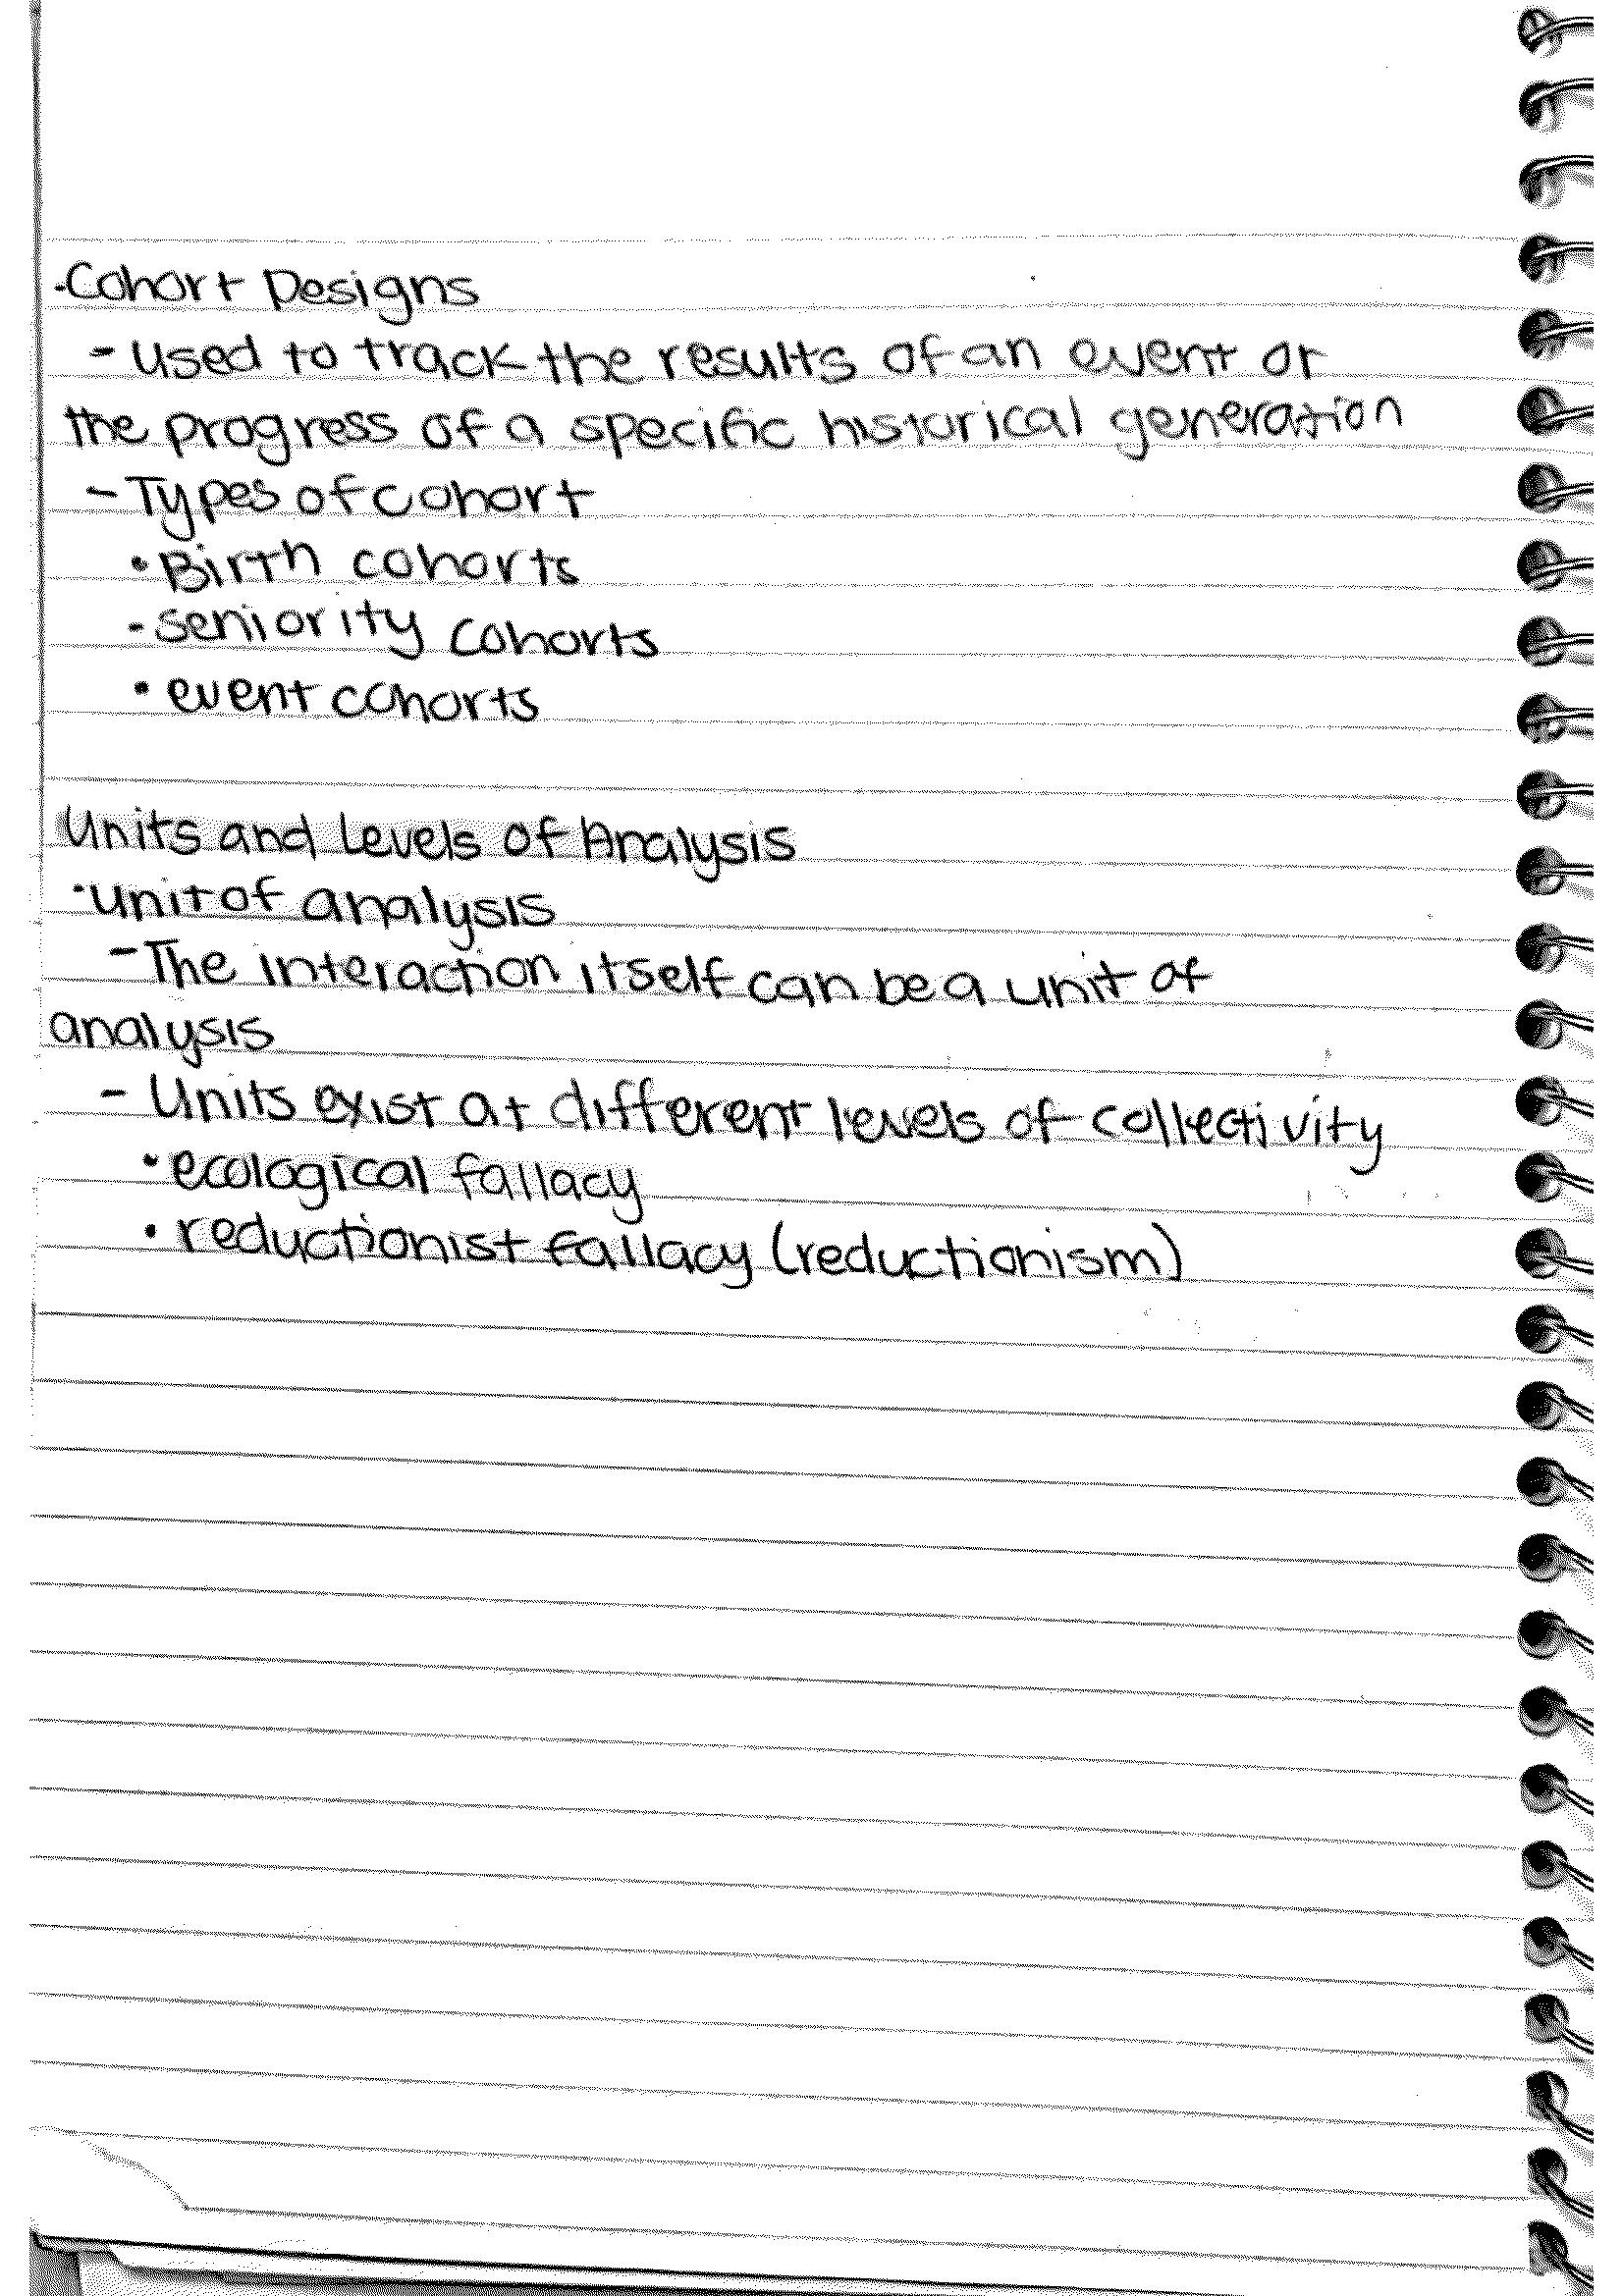 ·Cohort Designs
- Used to track the results of an event or
the progress of a specific historical generation
- Types of cohort
• Birth cohorts
- seniority cohorts
• event cohorts
Units and Levels of Analysis
·Unit of analysis
- The interaction itself can be a unit of
analysis
- Units exist at different levels of collectivity
• ecological fallacy
• reductionist fallacy (reductionism)